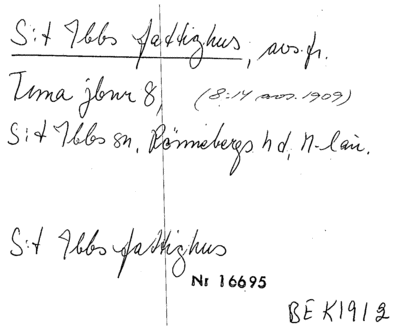 S:t Ibbs fattighus, avs. fr.
Tuna jbnr 8, (8:14 avs. 1909)
S:t Ibbs sn, Rönnebergs hd, M-län.
S:t Ibbs fattighus
Nr 16695
BEK1912